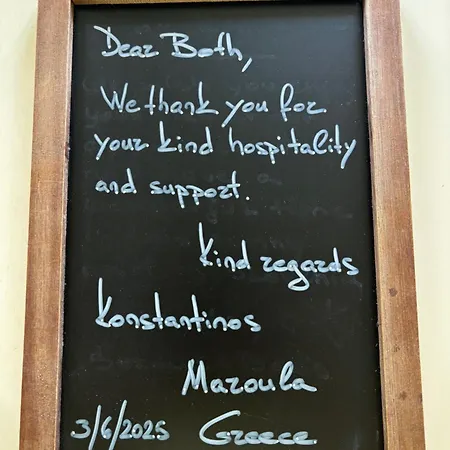 Dear Both,
We thank you for
your kind hospitality
and support.
Kind regards
Konstantinos
Maroula
3/6/2025 Greece.